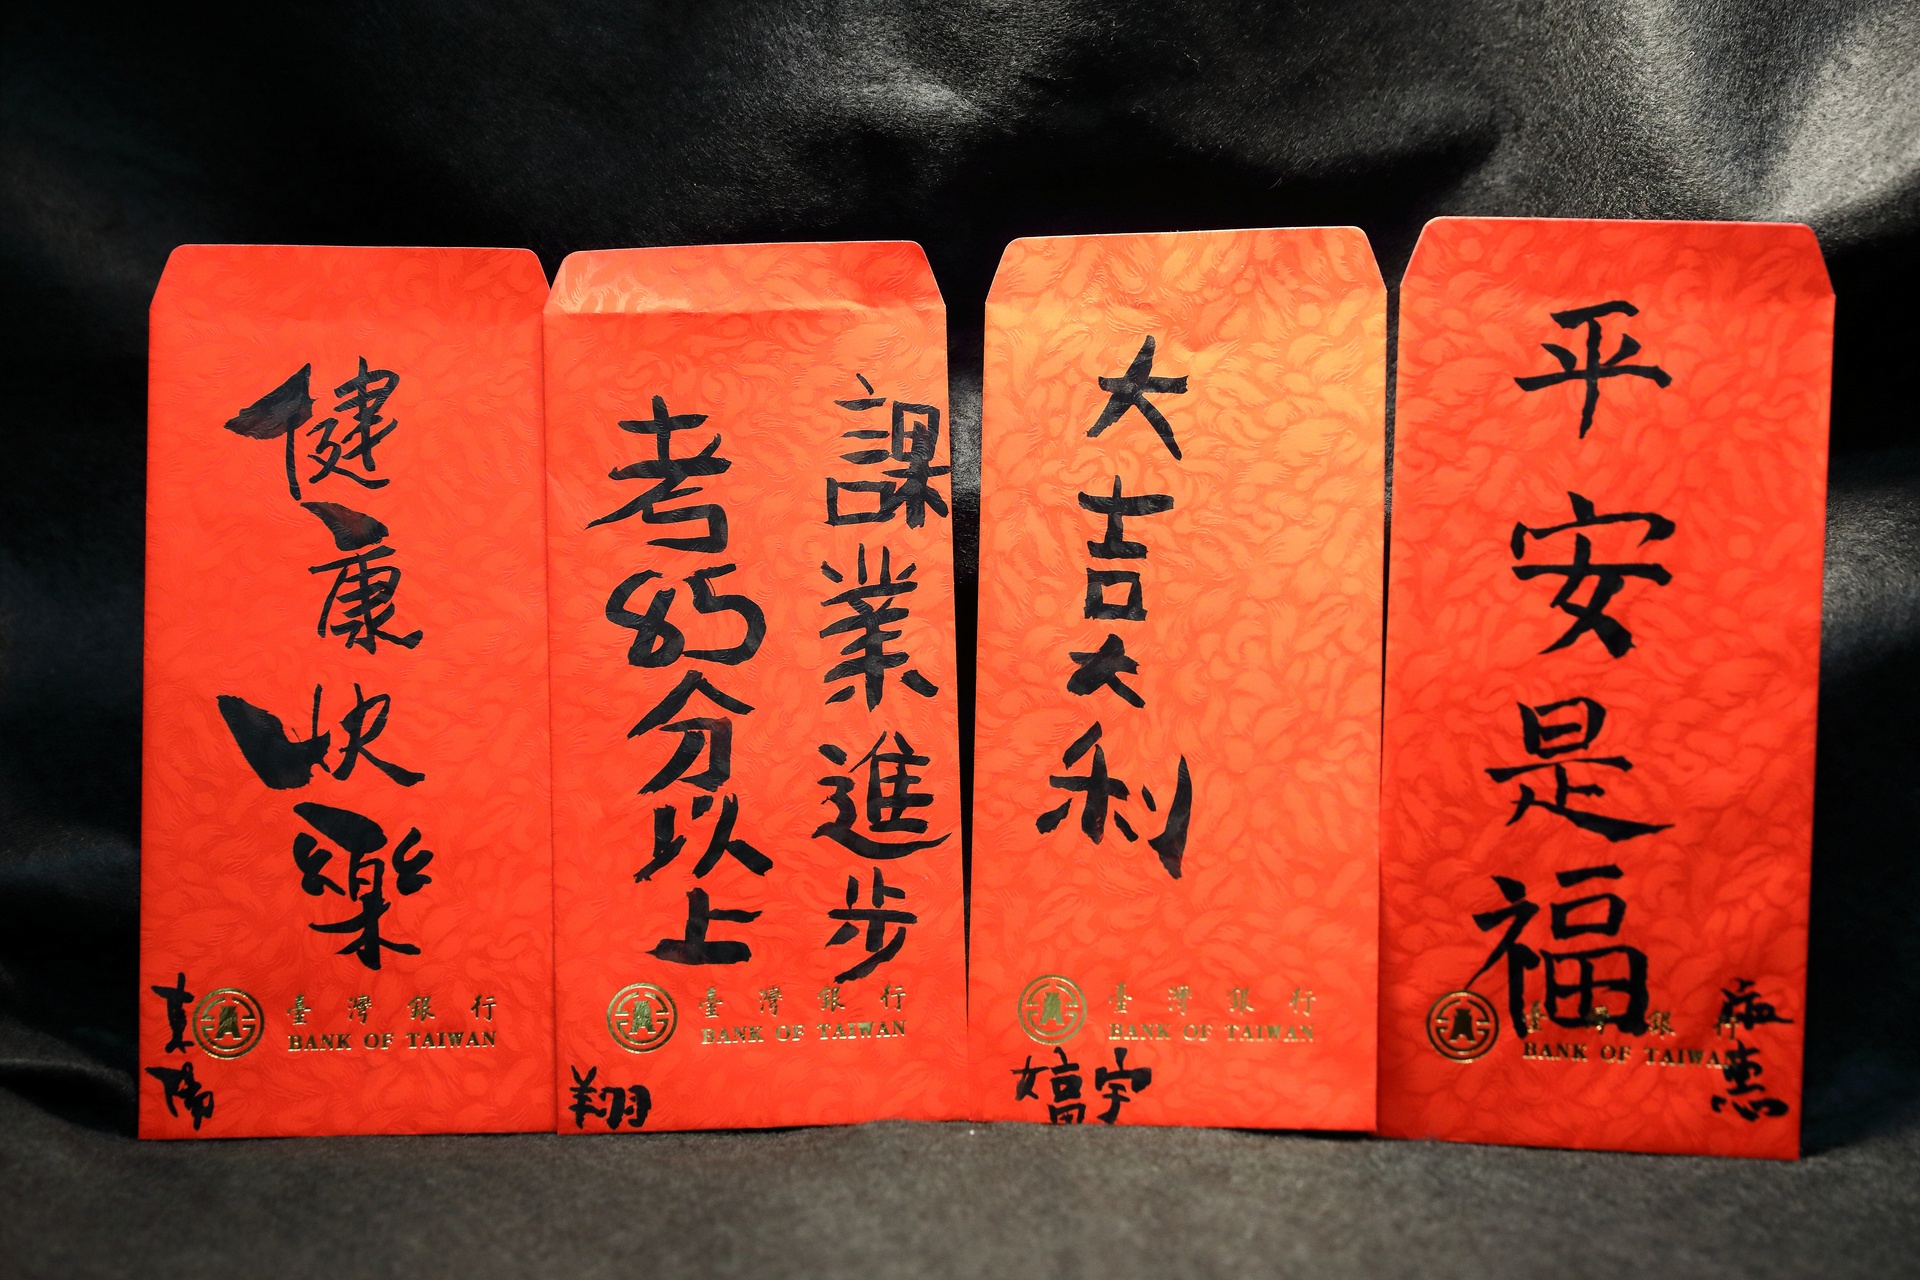 健康快樂
臺灣銀行
BANK OF TAIWAN
課業進步
考85分以上
臺灣銀行
BANK OF TAIWAN
翔
大吉大利
臺灣銀行
BANK OF TAIWAN
嬉宇
平安是福
臺灣銀行
BANK OF TAIWAN